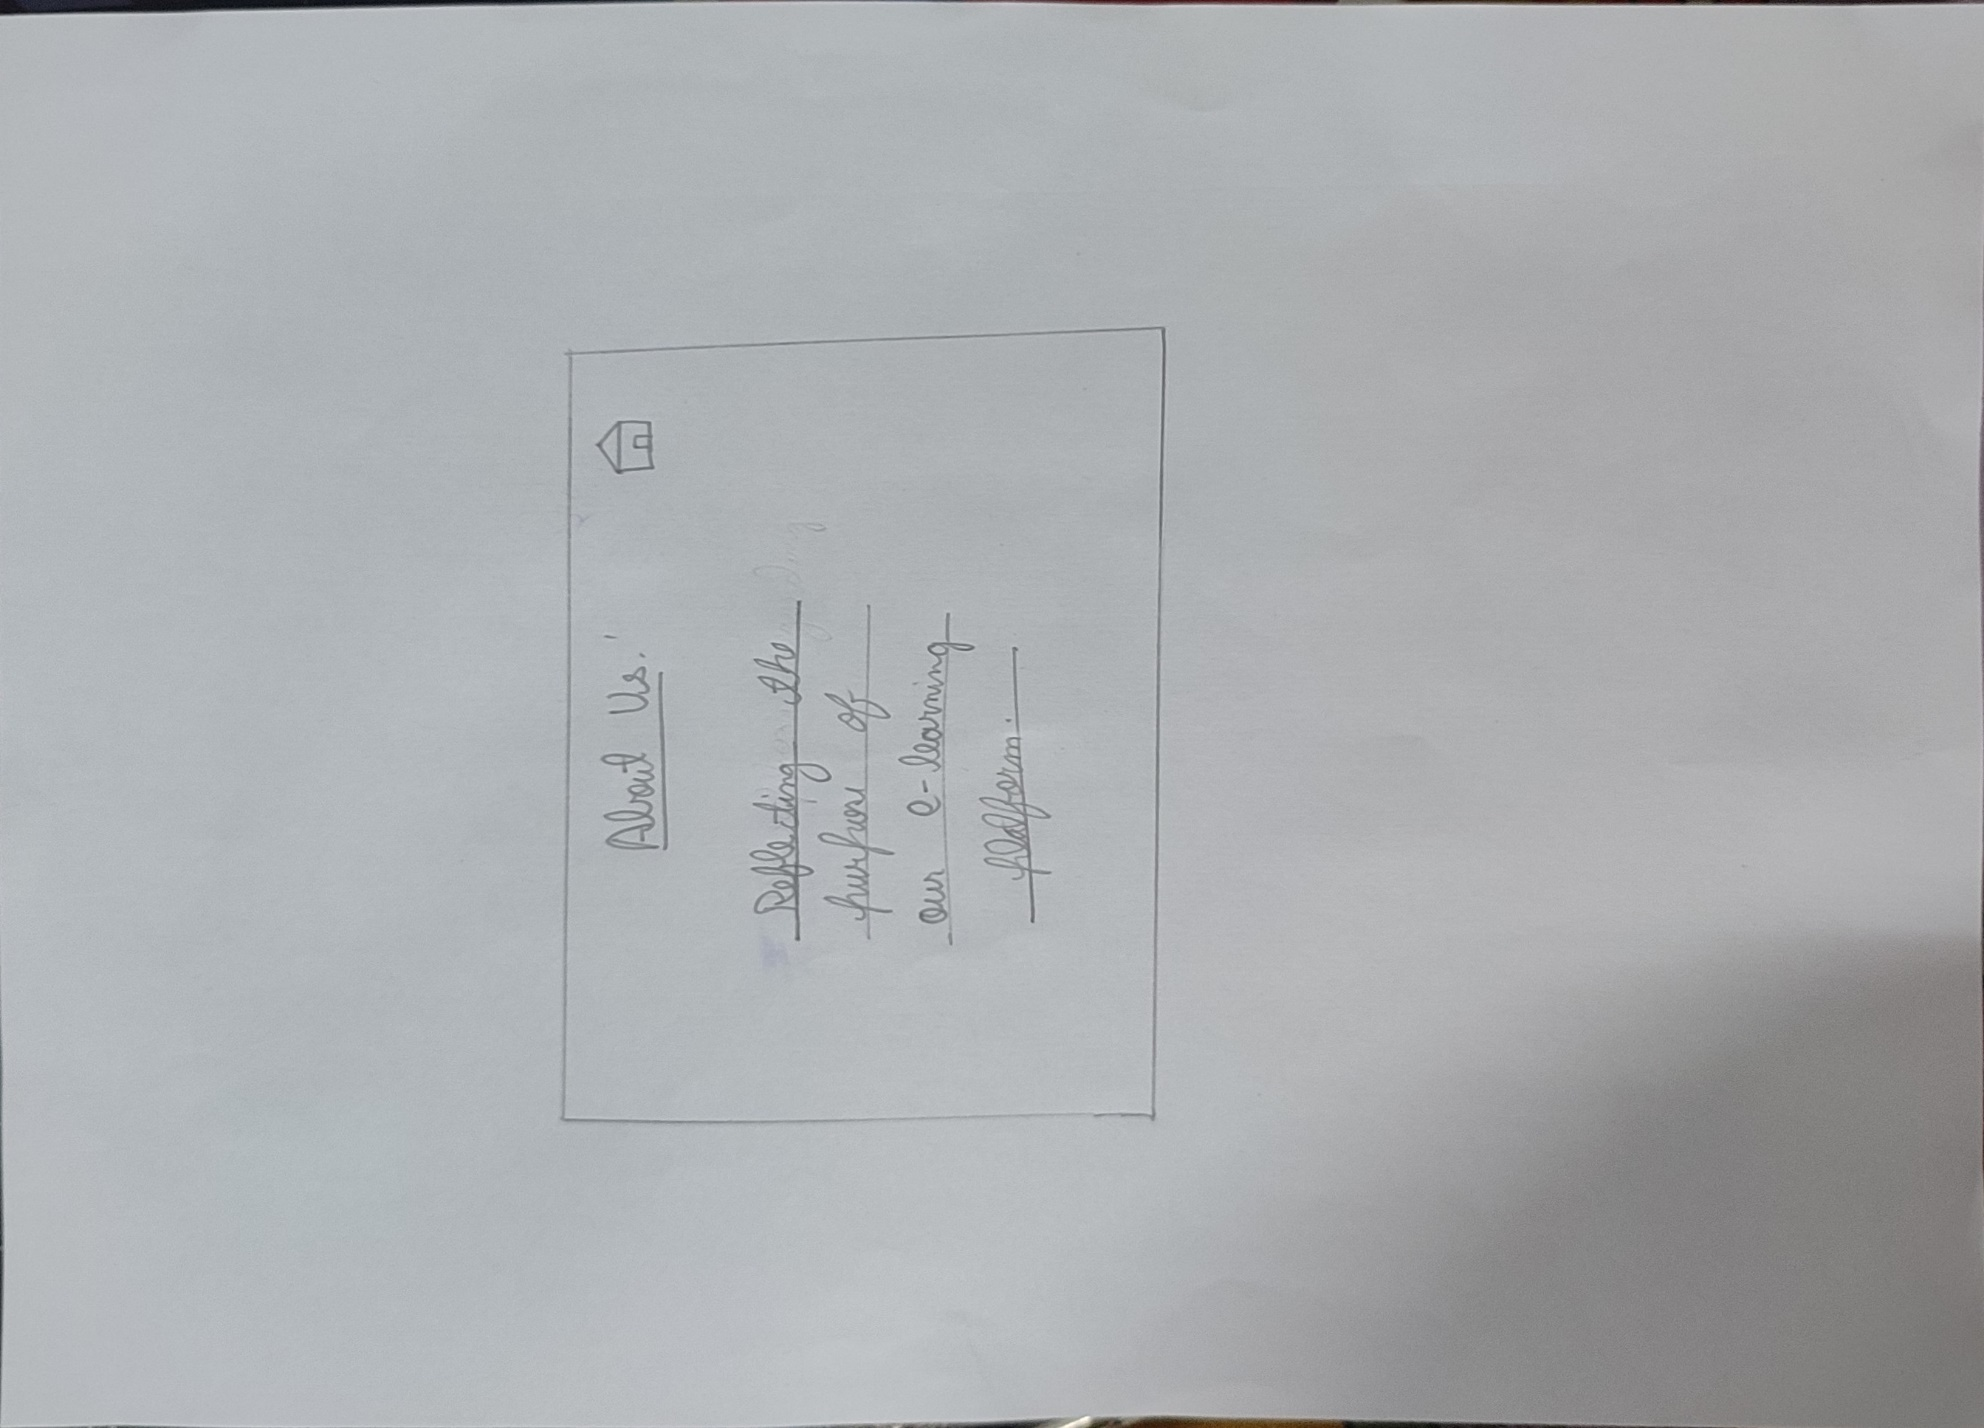 About Us.
Reflecting the
purpose of
our e-learning
platform.